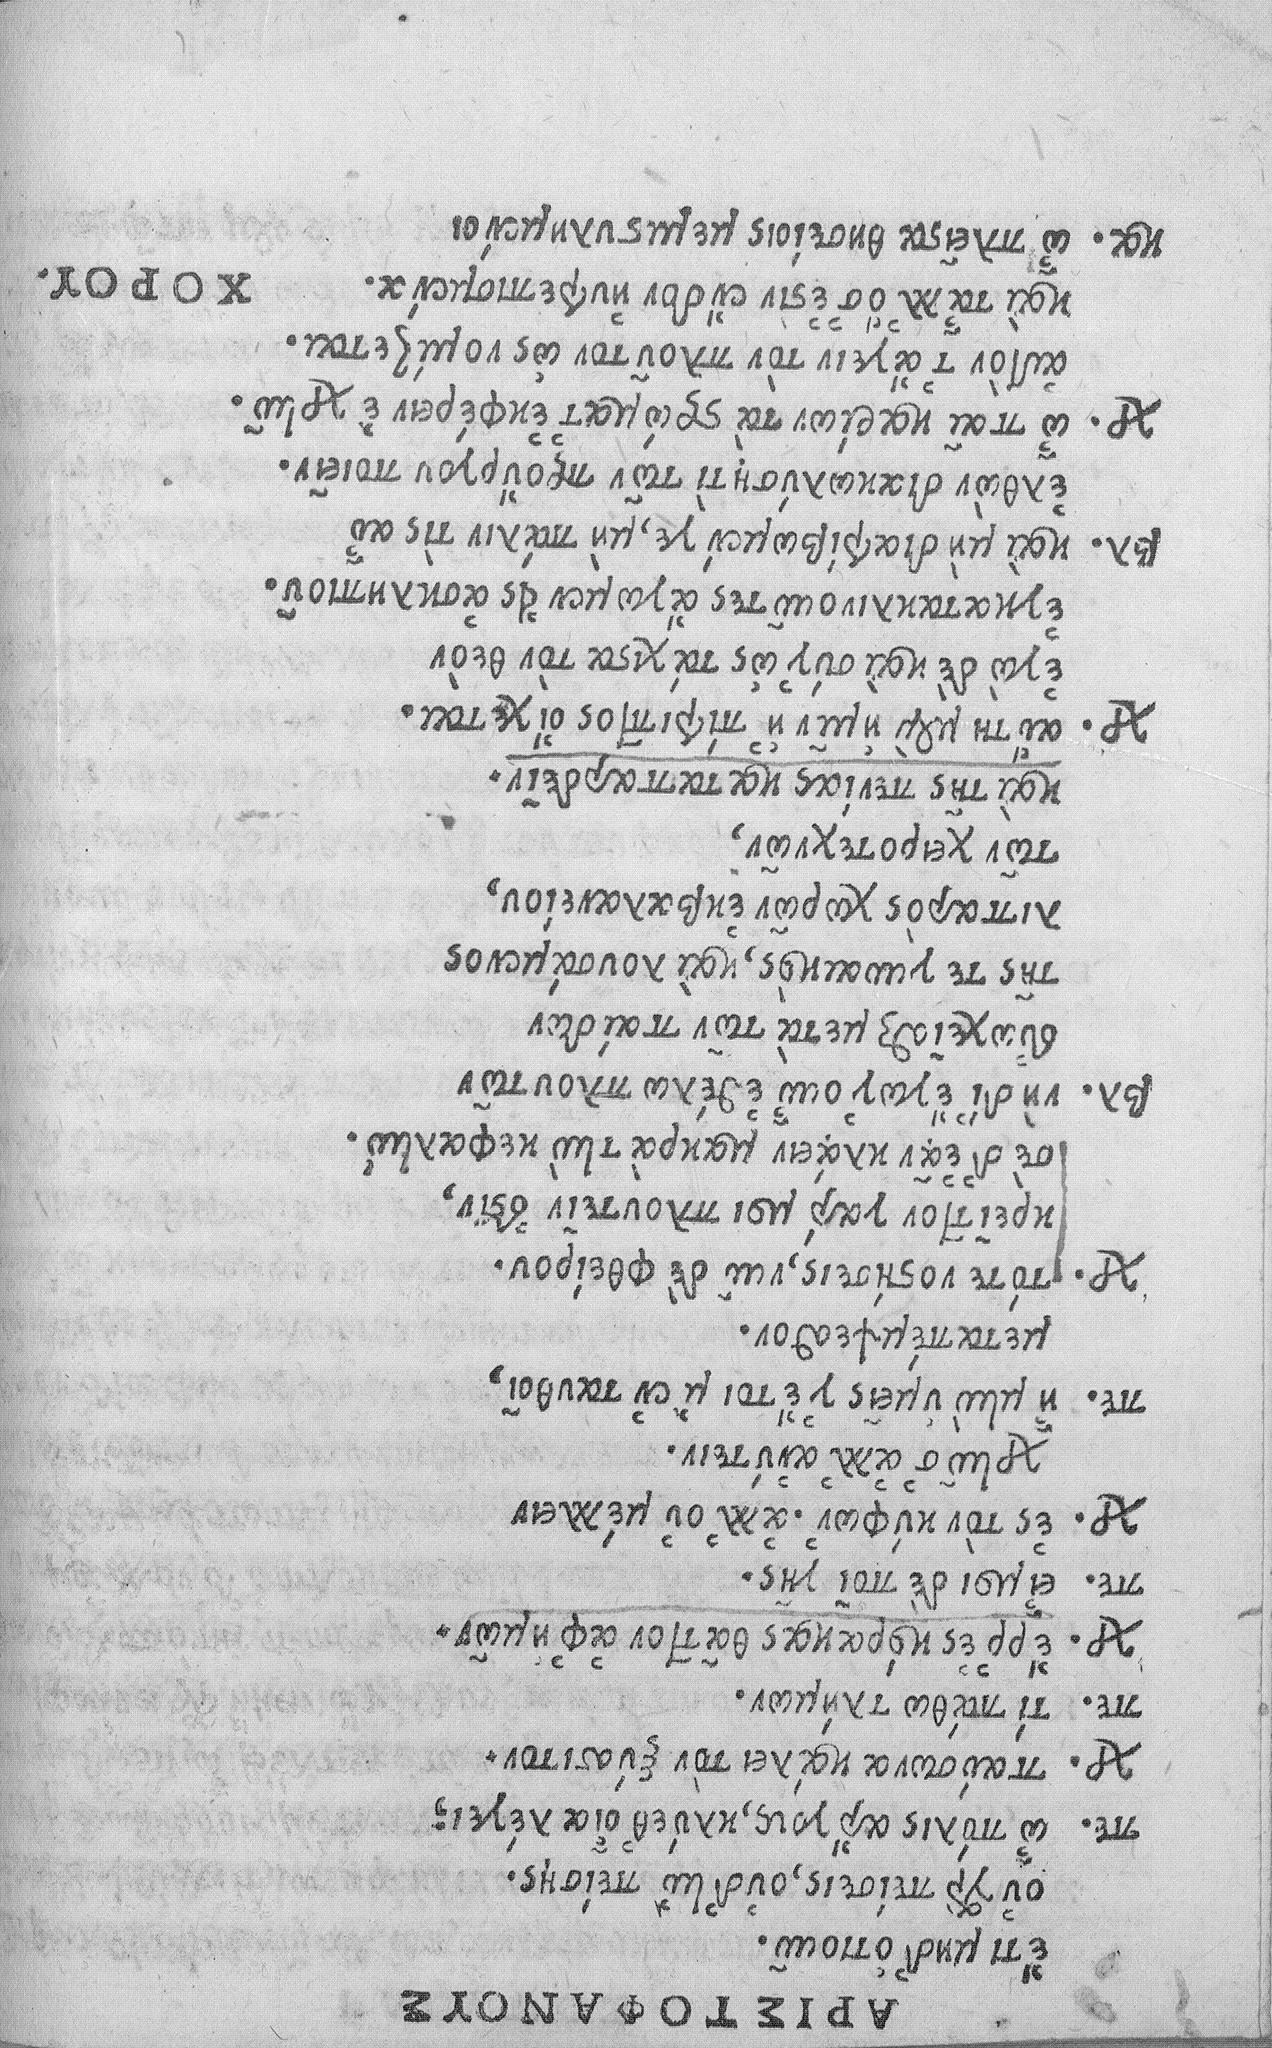 ΑΡΙΣΤΟΦΑΝΟΥΣ
ἔτι μηδ' ὁτιοῦν.
οὐ γὰρ πείσεις, οὐδ' ἢν πείσῃς.
πε. ὦ πόλις ἄργους, κλύεθ' οἷα λέγει;
χρ. παύσωνα κάλει τὸν ξύσσιτον.
πε. τί πάθω τλήμων.
χρ. ἔρρ' ἐς κόρακας θᾶττον ἀφ' ἡμῶν.
πε. εἶμι δὲ ποῖ γῆς.
χρ. ἐς τὸν κύφων'. ἀλλ' οὐ μέλλειν
χρῆν σ' ἀλλ' ἀνύτειν.
πε. ἦ μὴν ὑμεῖς γ' ἔτι μ' ἐνταυθοῖ,
μεταπέμψεσθον.
χρ. τότε νοστήσεις, νῦν δὲ φθείρου.
κρεῖττον γάρ μοι πλουτεῖν ἐστίν,
σὲ δ' ἐᾶν κλάειν μακρὰ τὴν κεφαλήν.
βλ. νὴ δί' ἔγωγ' οὖν ἐθέλω πλουτῶν
εὐωχεῖσθαι μετὰ τῶν παίδων
τῆς τε γυναικὸς, καὶ λουσάμενος
λιπαρὸς χωρῶν ἐκ βαλανείου,
τῶν χειροτεχνῶν,
καὶ τῆς πενίας καταπαρδεῖν.
χρ. αὕτη μὲν ἡμῖν ἡ 'πίτριπτος οἴχεται.
ἐγὼ δὲ καὶ σύ γ' ὡς τάχιστα τὸν θεὸν
ἐγκατακλινοῦντες ἄγωμεν εἰς ἀσκληπιοῦ.
βλ. καὶ μὴ διατρίβωμέν γε, μὴ πάλιν τις αὖ
ἐλθὼν διακωλύσῃ τι τῶν προὔργου ποιεῖν.
χρ. ὦ παῖ καρίων τὰ στρώματ' ἐκφέρειν ἐχρῆν.
αὐτόν τ' ἄγειν τὸν πλοῦτον ὡς νομίζεται.
καὶ τἆλλ' ὅσ' ἐστὶν ἔνδον ηὐτρεπισμένα. ΧΟΡΟΥ.
κα. ὦ πλεῖστα θησείοις μεμυστυλημένοι